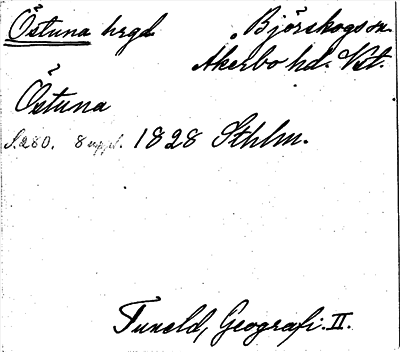 Östuna hrgd Björskogs sn.
Åkerbo hd. Vst.
Östuna
S. 280. 8 uppl. 1828 Sthlm.
Tuneld, Geografi. II.